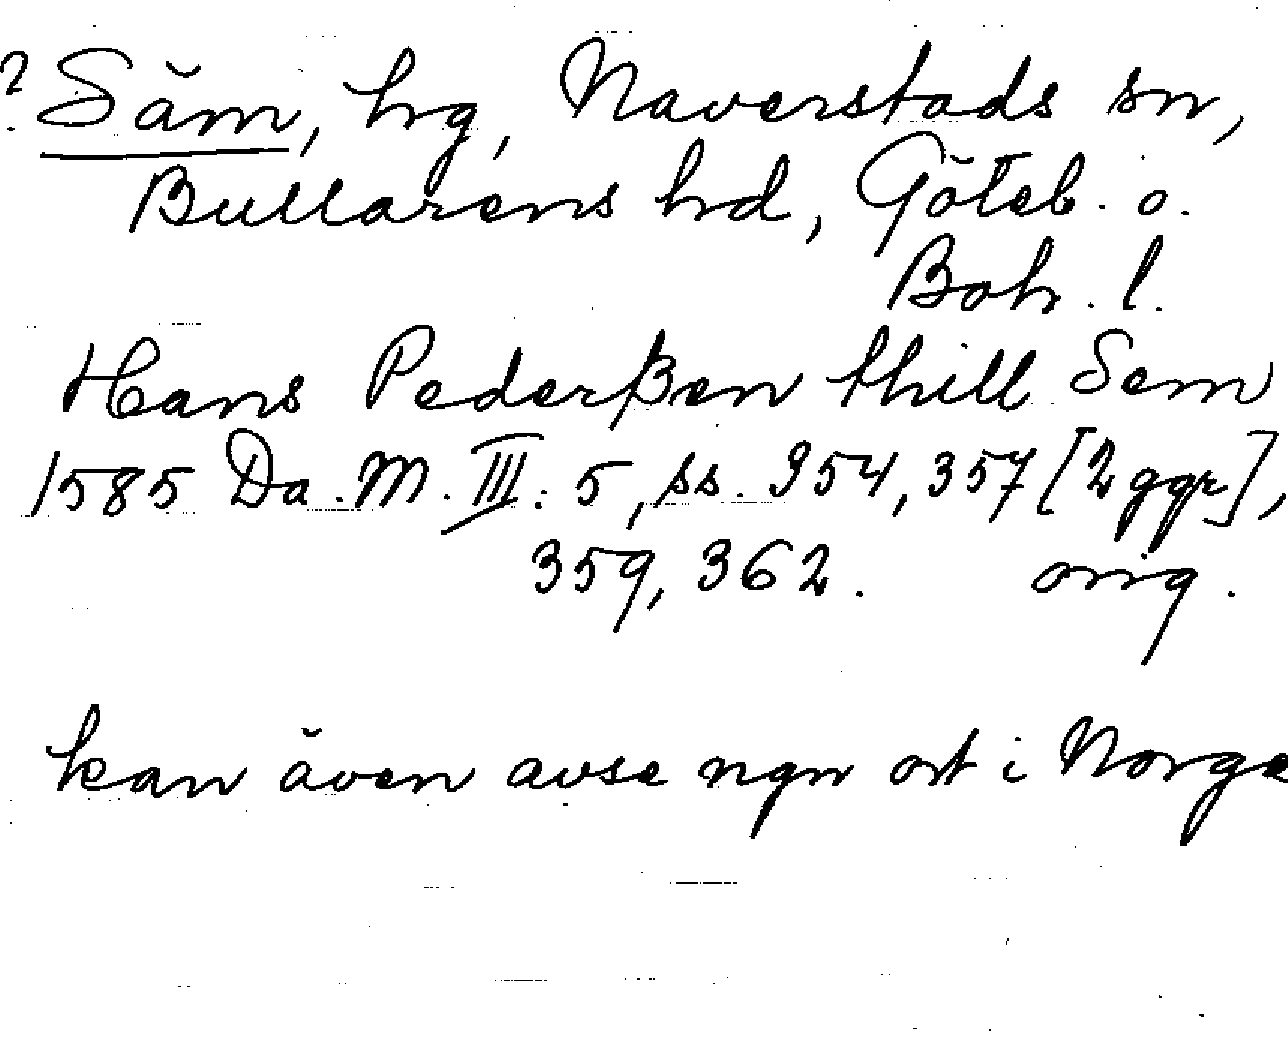 ? Säm, hg, Naverstads sn,
Bullarens hd, Göteb. o.
Boh. l.
Hans Pederßen thill Sem
1585 Da. M. III: 5, ss. 954, 357 [2 ggr],
359, 362. orig.
kan även avse ngn ort i Norge